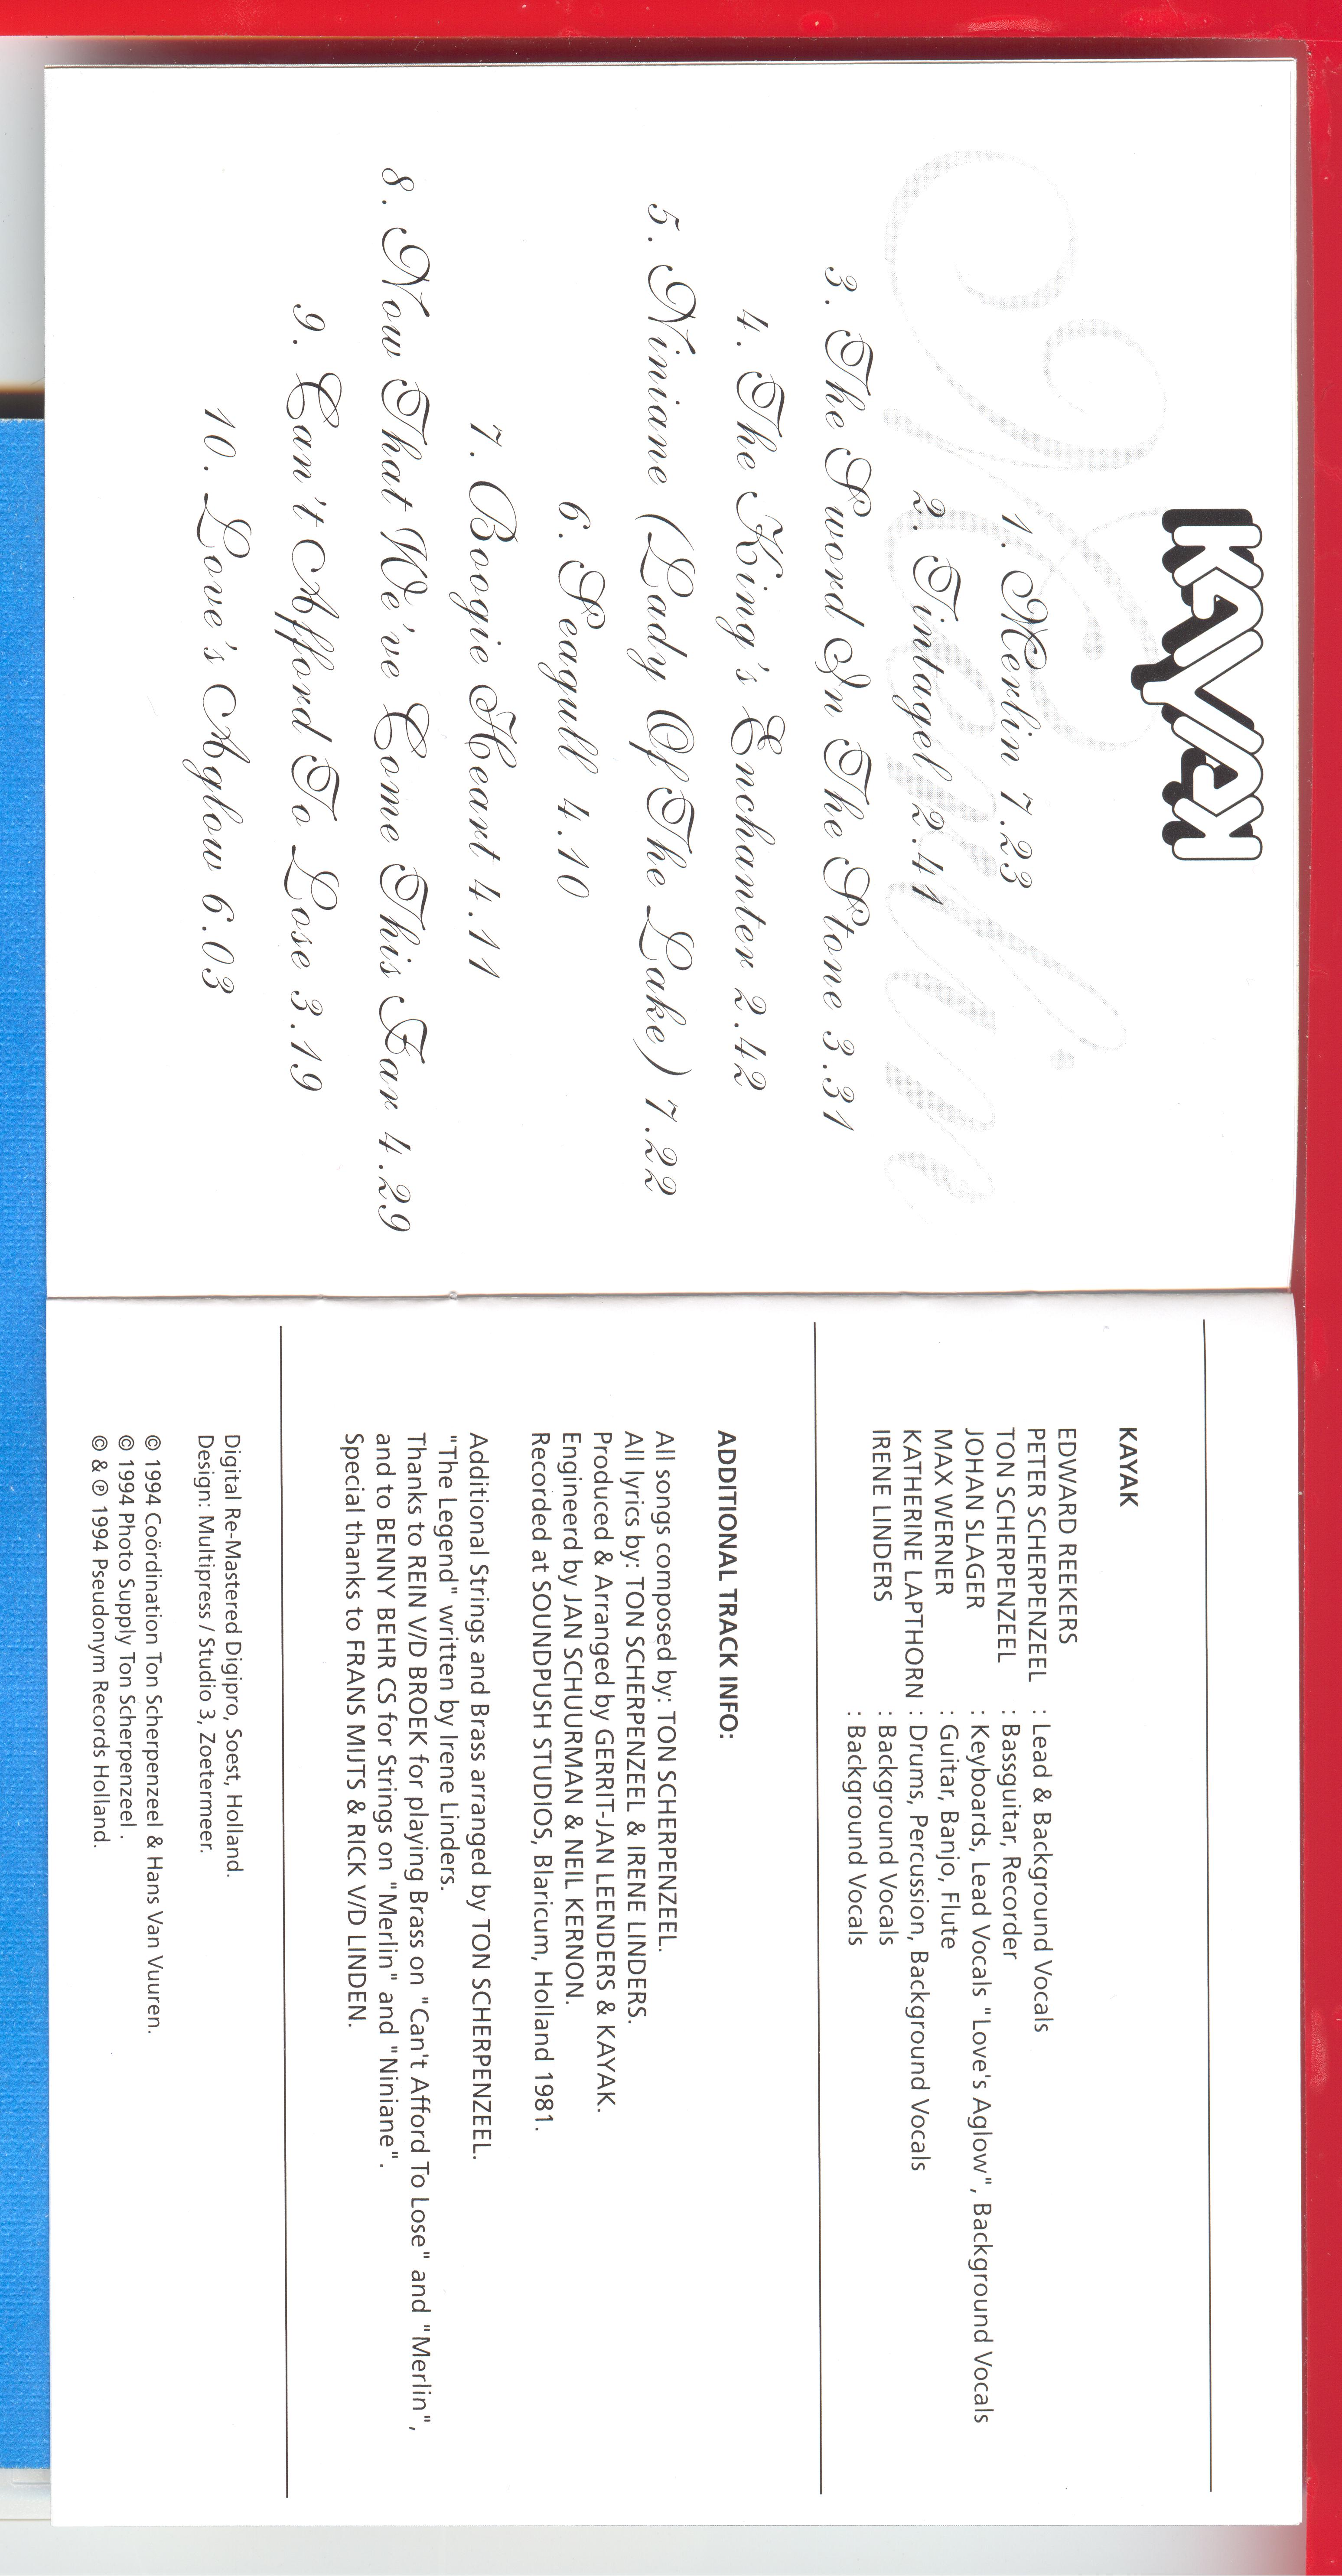 KAYAK
Merlin
1. Merlin 7.23
2. Tintagel 2.41
3. The Sword In The Stone 3.31
4. The King's Enchanter 2.42
5. Niniane (Lady Of The Lake) 7.22
6. Seagull 4.10
7. Boogie Heart 4.11
8. Now That We've Come This Far 4.29
9. Can't Afford To Lose 3.19
10. Love's Aglow 6.03
KAYAK
EDWARD REEKERS : Lead & Background Vocals
PETER SCHERPENZEEL : Bassguitar, Recorder
TON SCHERPENZEEL : Keyboards, Lead Vocals "Love's Aglow", Background Vocals
JOHAN SLAGER : Guitar, Banjo, Flute
MAX WERNER : Drums, Percussion, Background Vocals
KATHERINE LAPTHORN : Background Vocals
IRENE LINDERS : Background Vocals
ADDITIONAL TRACK INFO:
All songs composed by: TON SCHERPENZEEL.
All lyrics by: TON SCHERPENZEEL & IRENE LINDERS.
Produced & Arranged by GERRIT-JAN LEENDERS & KAYAK.
Engineerd by JAN SCHUURMAN & NEIL KERNON.
Recorded at SOUNDPUSH STUDIOS, Blaricum, Holland 1981.
Additional Strings and Brass arranged by TON SCHERPENZEEL.
"The Legend" written by Irene Linders.
Thanks to REIN V/D BROEK for playing Brass on "Can't Afford To Lose" and "Merlin",
and to BENNY BEHR CS for Strings on "Merlin" and "Niniane".
Special thanks to FRANS MIJTS & RICK V/D LINDEN.
Digital Re-Mastered Digipro, Soest, Holland.
Design: Multipress / Studio 3, Zoetermeer.
© 1994 Coördination Ton Scherpenzeel & Hans Van Vuuren.
© 1994 Photo Supply Ton Scherpenzeel .
© & ℗ 1994 Pseudonym Records Holland.